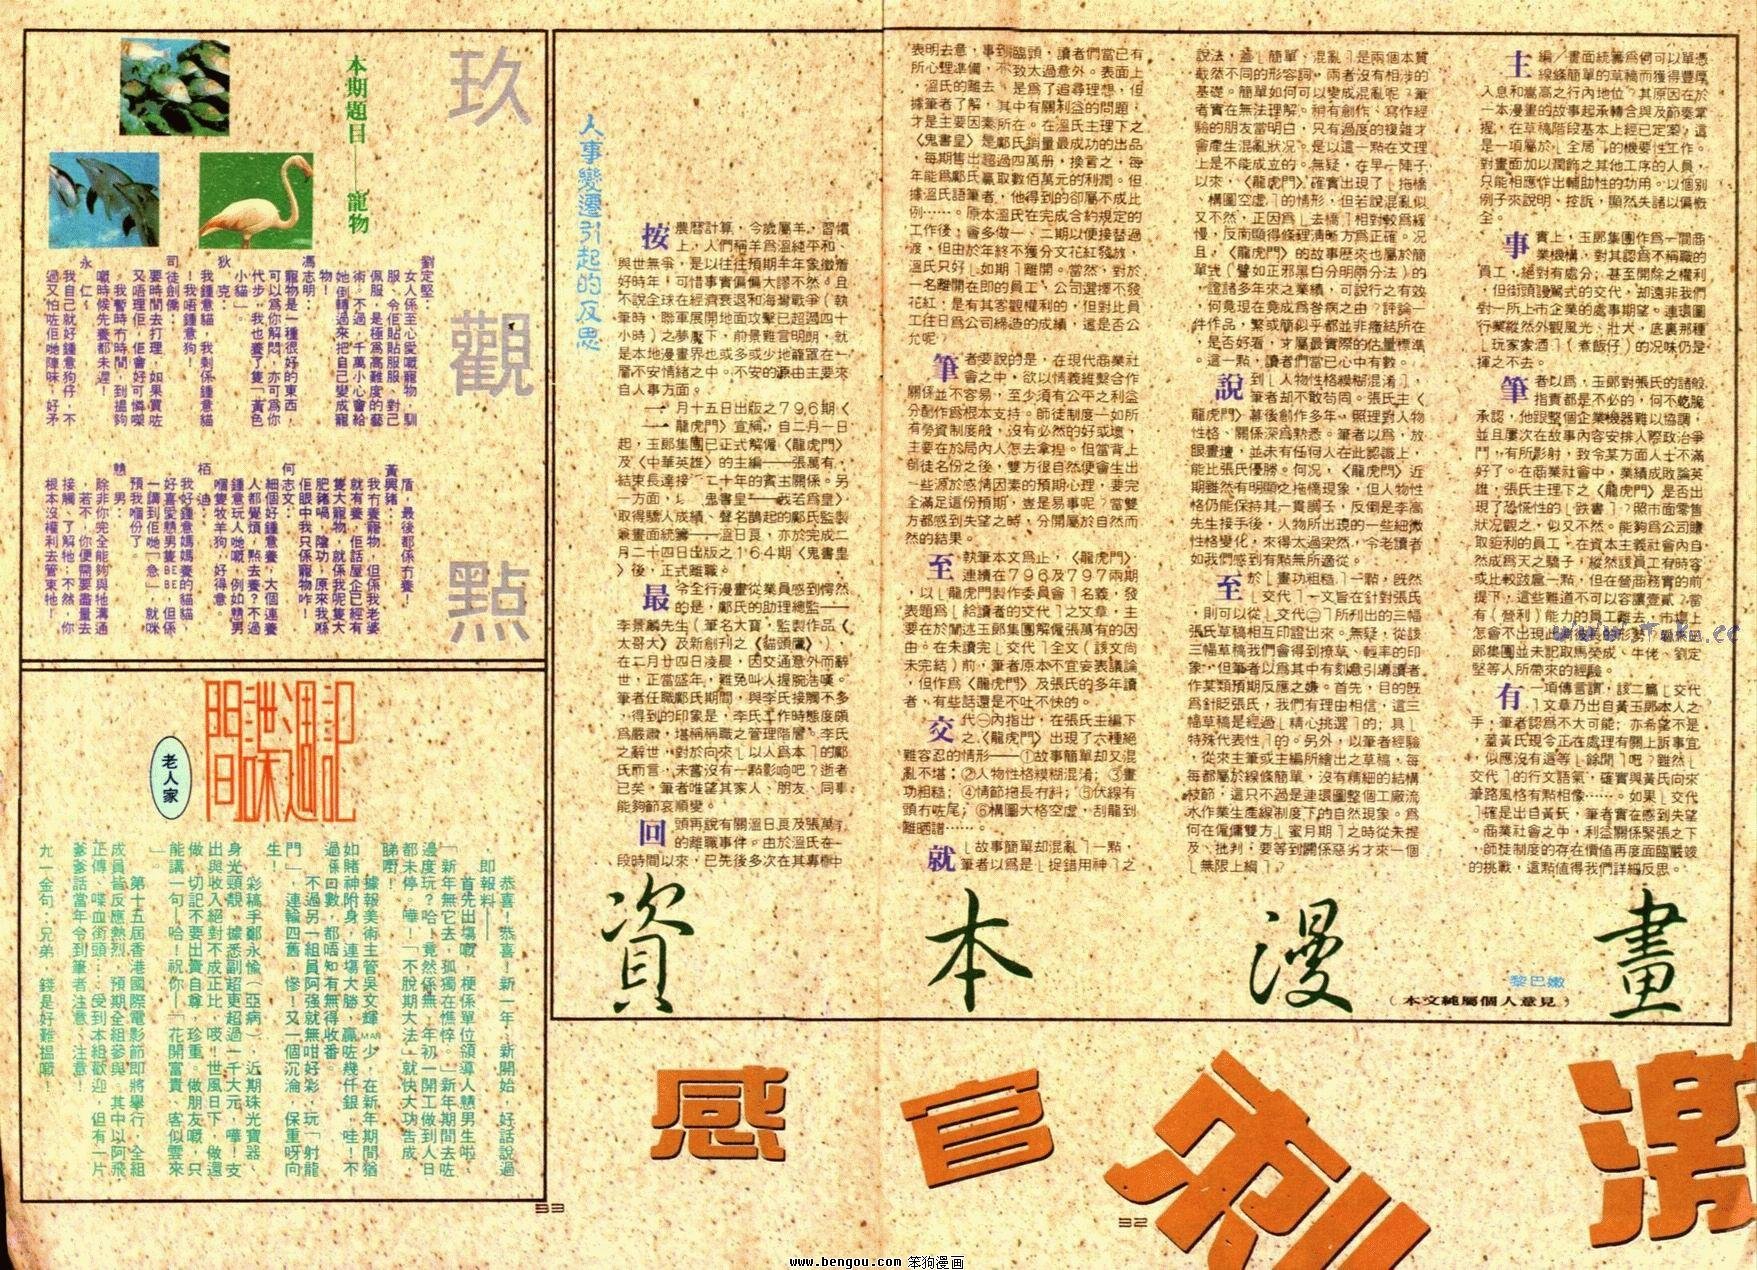 玖觀點
本期題目——寵物
劉定堅：
女人係至心愛嘅寵物，馴
服、令佢貼貼服服、對己
佩服，是極爲高難度的藝
術。不過，千萬小心會給
她倒轉過來把自己變成寵
物！
馮志明：
寵物是一種很好的東西，
可以爲你解悶，亦可爲你
代步。我也養了隻「黃色
小貓」。
狄　克：
我鍾意貓，我剩係鍾意貓
！我唔鍾意狗！
司徒劍僑：
要時間去打理，如果買咗
又唔理佢，佢會好可憐㗎
。我暫時冇時間，到搵夠
嘅時候先養都未遲！
永　仁：
我自己就好鍾意狗仔，不
過又怕咗佢哋陣味，好矛
盾，最後都係冇養！
黃興豬：
我冇養寵物，但係我老婆
就有養，佢話屋企正已經有
隻大寵物，就係我呢隻大
肥豬喎，陰功，原來我喺
佢眼中我只係寵物咋！
何志文：
細個好鍾意養，大個連養
人都覺煩，點去養？不過
鍾意玩人哋嘅，例如戇男
嗰隻牧羊狗，好得意。
栢　迪：
我好鍾意媽媽養的貓貓，
好喜愛戇男隻ＢＥＢＥ，但係
一講到佢哋「急」，就咪
預我嗰份了。
戇　男：
除非你完全能夠與牠溝通
、接觸、了解牠；不然，你
若不，你便需要盡量去
根本沒權利去管束牠！
間諜週記
老人家
恭喜！恭喜！新一年，新開始，好話說過
，即報料——
首先出塲嘅，梗係單位領導人戇男生啦，
「新年無它去，孤獨在憔悴。」新年期間去咗
邊度玩？哈！竟然係無，年初一開工做到人日
都未停。嘩！「不脫期大法」就快大功告成，
睇嘢！
據報美術主管吳文輝ＭＡＲ少，在新年期間猶
如賭神附身，連塲大勝，贏咗幾仟銀。哇！不
過係回數，都唔知有無得收番。
不過另一組員阿强就無咁好彩，玩「射龍
門」，連輸四舊，慘！又一個沉淪，保重呀向
生！
彩稿手鄭永愉（亞病），近期珠光寶器、
身光頸靚，據悉副超更超過一千大元，嘩！支
出與收入絕對不成正比，吱！世風日下，做還
做，切記不要出賣自尊，珍重。做朋友嘅，只
能講一句——哈！祝你——「花開富貴、客似雲來
」。
第十五屆香港國際電影節即將舉行，全組
成員皆反應熱烈，預期全組參與，其中以阿飛
正傳、喋血街頭…受到本組歡迎，但有一片
爹爹話當年令到筆者注意，注意！
九一金句：兄弟，錢是好難搵嘅！
33
人事變遷引起的反思
按農曆計算，今歲屬羊。習慣
上，人們稱羊爲溫純平和、
與世無爭，是以往往預期羊年象徵着
好時年，可惜事實偏偏大謬不然。且
不說全球在經濟衰退和海灣戰爭（執
筆時，聯軍展開地面攻擊已超過四十
小時）之夢魘下，前景難言明朗，就
是本地漫畫界也或多或少地籠罩在一
層不安情緒之中。不安的源由主要來
自人事方面。
一月十五日出版之７９６期《
龍虎門》宣稱，自二月一日
起，玉郎集團已正式解僱《龍虎門》
及《中華英雄》的主編——張萬有，
結束長達接近二十年的賓主關係。另
一方面，以《鬼書皇》（我若爲皇）
取得驕人成績、聲名鵲起的鄺氏監製
兼畫面統籌——溫日良，亦於完成二
月二十四日出版之１６４期《鬼書皇
》後，正式離職。
最令全行漫畫從業員感到愕然
的是，鄺氏的助理總監——
李景麟先生（筆名大寶，監製作品《
太哥大》及新創刊之《貓頭鷹》），
在二月廿四日淩晨，因交通意外而辭
世，正當盛年，難免叫人握腕浩嘆。
筆者任職鄺氏期間，與李氏接觸不多
，得到的印象是，李氏工作時態度頗
爲嚴肅，堪稱稱職之管理階層。李氏
之辭世，對於向來「以人爲本」的鄺
氏而言，未嘗沒有一點影响吧？逝者
已矣，筆者唯望其家人、朋友、同事
能夠節哀順變。
回頭再說有關溫日良及張萬有
的離職事件。由於溫氏在一
段時間以來，已先後多次在其專欄中
表明去意，事到臨頭，讀者們當已有
所心理準備，不致太過意外。表面上
，溫氏的離去，是爲了追尋理想，但
據筆者了解，其中有關利益的問題，
才是主要因素所在。在溫氏主理下之
《鬼書皇》是鄺氏銷量最成功的出品
，每期售出超過四萬册，換言之，每
年能爲鄺氏贏取數佰萬元的利潤。但
據溫氏語筆者，他得到的卻屬不成比
例……。原本溫氏在完成合約規定的
工作後，會多做一、二期以便接替過
渡，但由於年終不獲分文花紅發放，
溫氏只好「如期」離開。當然，對於
一名離開在即的員工，公司選擇不發
花紅，是有其客觀權利的，但對比員
工往日爲公司締造的成績，這是否公
允呢？
筆者要說的是，在現代商業社
會之中，欲以情義維繫合作
關係並不容易，至少須有公平之利益
分配作爲根本支持。師徒制度一如所
有勞資制度般，沒有必然的好或壞，
主要在於局內人怎去拿捏。但當背上
師徒名份之後，雙方很自然便會生出
一些源於感情因素的預期心理，要完
全滿足這份預期，豈是易事呢？當雙
方都感到失望之時，分開屬於自然而
然的結果。
至執筆本文爲止，《龍虎門》
連續在７９６及７９７兩期
，以「龍虎門製作委員會」名義，發
表題爲「給讀者的交代」之文章，主
要在於闡述玉郎集團解僱張萬有的因
由。在未讀完「交代」全文（該文尚
未完結）前，筆者原本不宜妄表議論
，但作爲《龍虎門》及張氏的多年讀
者，有些話還是不吐不快的。
交代㊀內指出，在張氏主編下
之《龍虎門》出現了六種絕
難容忍的情形——①故事簡單却又混
亂不堪；②人物性格模糊混淆；③畫
功粗糙；④情節拖長冇料；⑤伏線有
頭冇咗尾；⑥構圖大格空虛，刮龍到
離晒譜……。
就「故事簡單却混亂」一點，
筆者以爲是「捉錯用神」之
說法，蓋「簡單、混亂」是兩個本質
截然不同的形容詞，兩者沒有相涉的
基礎。簡單如何可以變成混亂呢？筆
者實在無法理解。稍有創作、寫作經
驗的朋友當明白，只有過度的複雜才
會產生混亂狀況。是以這一點在文理
上是不能成立的。無疑，在早一陣子
以來，《龍虎門》確實出現了「拖橋
、構圖空虛」的情形，但若說混亂似
又不然，正因爲「去橋」相對較爲緩
慢，反而顯得條理清晰方爲正確。况
且，《龍虎門》的故事歷來也屬於簡
單式（譬如正邪黑白分明兩分法）的
，證諸多年來之業績，可說行之有效
，何竟現在竟成爲咎病之由？評論一
件作品，繁或簡似乎都並非癥結所在
，是否好看，才屬最實際的估量標準
。這一點，讀者們當已心中有數。
說到「人物性格模糊混淆」，
筆者却不敢苟同。張氏主《
龍虎門》幕後創作多年，照理對人物
性格、關係深爲熟悉。筆者以爲，放
眼畫壇，並未有任何人在此認識上，
能比張氏優勝。何况，《龍虎門》近
期雖然有明顯之拖橋現象，但人物性
格仍能保持其一貫調子，反倒是李高
先生接手後，人物所出現的一些細微
性格變化，來得太過突然，令老讀者
如我們感到有點無所適從。
至於「畫功粗糙」一點，既然
「交代」一文旨在針對張氏
，則可以從「交代㊁」所刋出的三幅
張氏草稿相互印證出來。無疑，從該
三幅草稿我們會得到撩草、輕率的印
象，但筆者以爲其中有刻意引導讀者
作某類預期反應之嫌。首先，目的旣
爲針貶張氏，我們有理由相信，這三
幅草稿是經過「精心挑選」的；具「
特殊代表性」的。另外，以筆者經驗
，從來主筆或主編所繪出之草稿，每
每都屬於線條簡單，沒有精細的結構
枝節，這只不過是連環圖整個工廠流
水作業生產線制度下的自然現象。爲
何在僱傭雙方「蜜月期」之時從未提
及、批判，要等到關係惡劣才來一個
「無限上綱」？
主編／畫面統籌爲何可以單憑
線條簡單的草稿而獲得豐厚
入息和嵩高之行內地位？其原因在於
一本漫畫的故事起承轉合與及節奏掌
握，在草稿階段基本上經已定案，這
是一項屬於「全局」的機要性工作。
對畫面加以潤飾之其他工序的人員，
只能相應作出輔助性的功用。以個別
例子來說明、控訴，顯然失諸以偏慨
全。
事實上，玉郎集團作爲一間商
業機構，對其認爲不稱職的
員工，絕對有處分，甚至開除之權利
，但街頭謾罵式的交代，却遠非我們
對一所上市企業的處事期望。連環圖
行業縱然外觀風光、壯大，底裏那種
「玩家家酒」（煮飯仔）的况味仍是
揮之不去。
筆者以爲，玉郎對張氏的諸般
指責都是不必的，何不乾脆
承認，他跟整個企業機器難以協調，
並且屢次在故事內容安排人際政治爭
鬥，有所影射，致令某方面人士不滿
好了。在商業社會中，業績成敗論英
雄，張氏主理下之《龍虎門》是否出
現了恐怖性的「跌書」？照市面零售
狀况觀之，似又不然。能夠爲公司賺
取鉅利的員工，在資本主義社會內自
然成爲天之驕子，縱然該員工有時容
或比較跋扈一點，但在營商務實的前
提下，這些難道不可以容讓壹貳？當
有（營利）能力的員工離去，市塲上
怎會不出現此消彼長的形勢？難道玉
郎集團並未記取馬榮成、牛佬、劉定
堅等人所帶來的經驗。
有一項傳言謂，該二篇「交代
」文章乃出自黃玉郎本人之
手，筆者認爲不大可能；亦希望不是
，蓋黃氏現今正在處理有關上訴事宜
，似應沒有這等「餘閒」吧？雖然「
交代」的行文語氣，確實與黃氏向來
筆路風格有點相像……。如果「交代
」確是出自黃氏，筆者實在感到失望
。商業社會之中，利益關係緊張之下
，師徒制度的存在價值再度面臨嚴竣
的挑戰，這點值得我們詳細反思。
資本漫畫
黎巴嫩
（本文純屬個人意見）
感官刺激
32
www.bengou.com 笨狗漫画